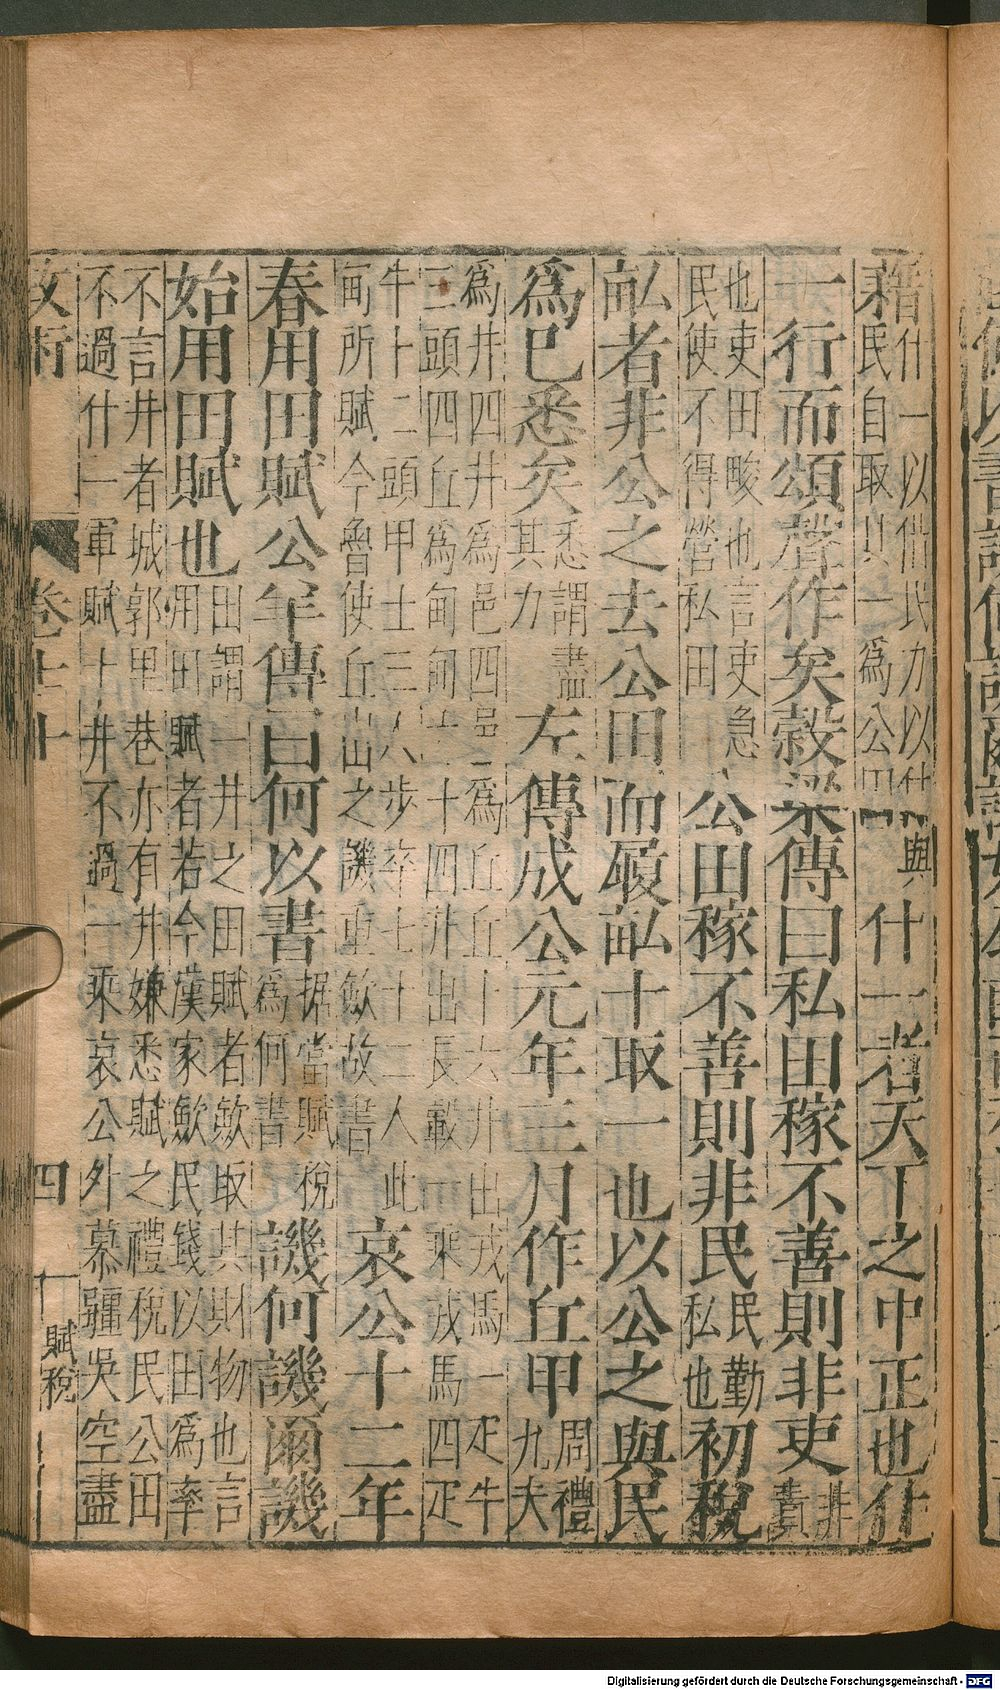 藉什一以借民力以什與民自取其一爲公田什一者天下之中正也什
一行而頌聲作矣穀梁傳曰私田稼不善則非吏非責
也吏田畯也言吏急民使不得營私田公田稼不善則非民民勤私也初稅
畝者非公之去公田而履畝十取一也以公之與民
爲已悉矣悉謂盡其力左傳成公元年三月作丘甲周禮九夫
爲井四井爲邑四邑爲丘丘十六井出戎馬一疋牛三頭四丘爲甸甸六十四井出長轂一乘戎馬四疋
牛十二頭甲士三人步卒七十二人此甸所賦今魯使丘出之譏重歛故書哀公十二年
春用田賦公羊傳曰何以書據當賦稅爲何書譏何譏爾譏
始用田賦也田謂一井之田賦者歛取其財物也言用田賦者若今漢家歛民錢以田爲率
不言井者城郭里巷亦有井嫌悉賦之禮稅民公田不過什一軍賦十井不過一乘哀公外慕彊吳空盡
卷十
四
賦稅
Digitalisierung gefördert durch die Deutsche Forschungsgemeinschaft - DFG